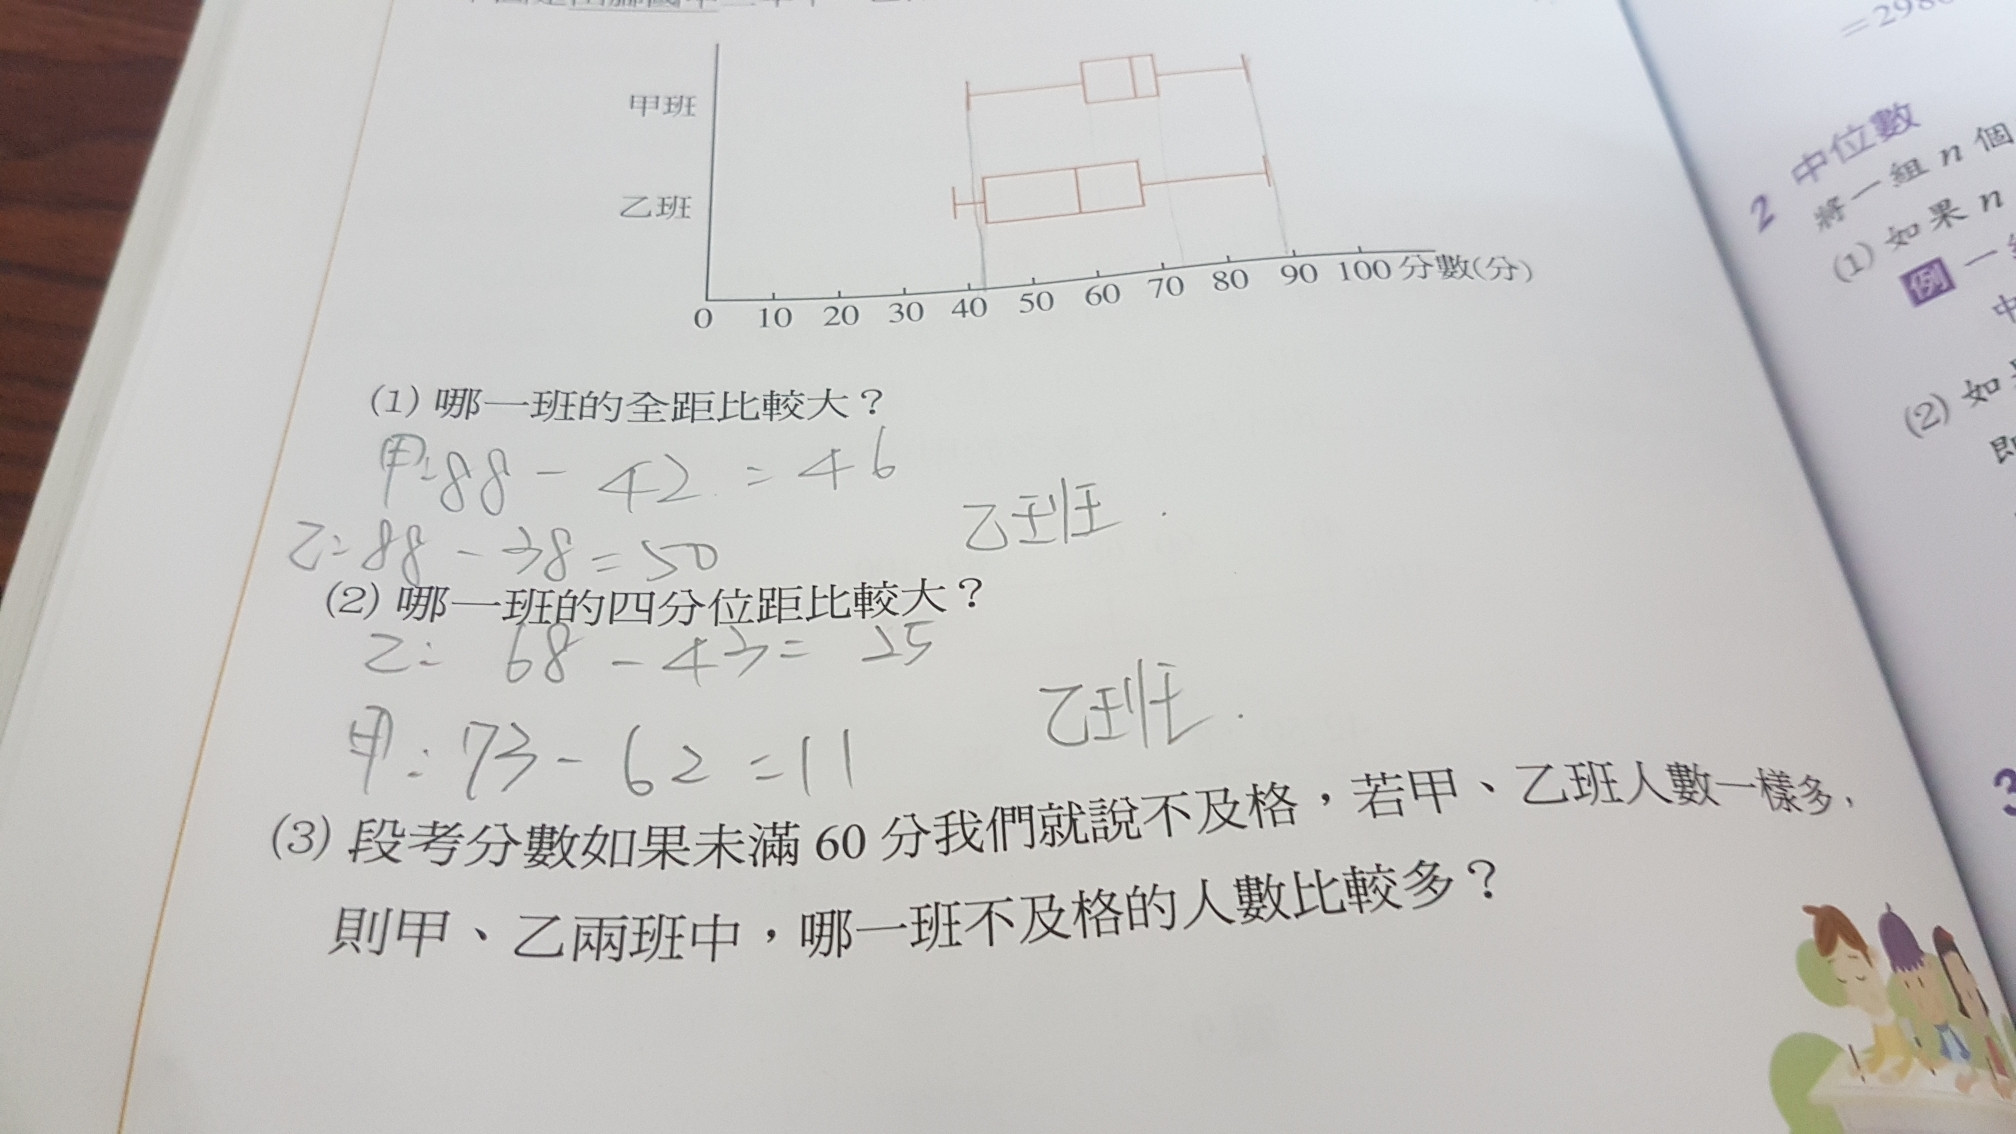 甲班
乙班
0 10 20 30 40 50 60 70 80 90 100 分數(分)
(1) 哪一班的全距比較大？
甲:88 - 42 = 46
乙:88 - 38 = 50
乙班.
(2) 哪一班的四分位距比較大？
乙: 68 - 43 = 25
甲: 73 - 62 = 11
乙班.
(3) 段考分數如果未滿 60 分我們就說不及格，若甲、乙班人數一樣多，
則甲、乙兩班中，哪一班不及格的人數比較多？
2 中位數
將一組 n 個
(1) 如果 n
例 一
中
(2) 如
即
3